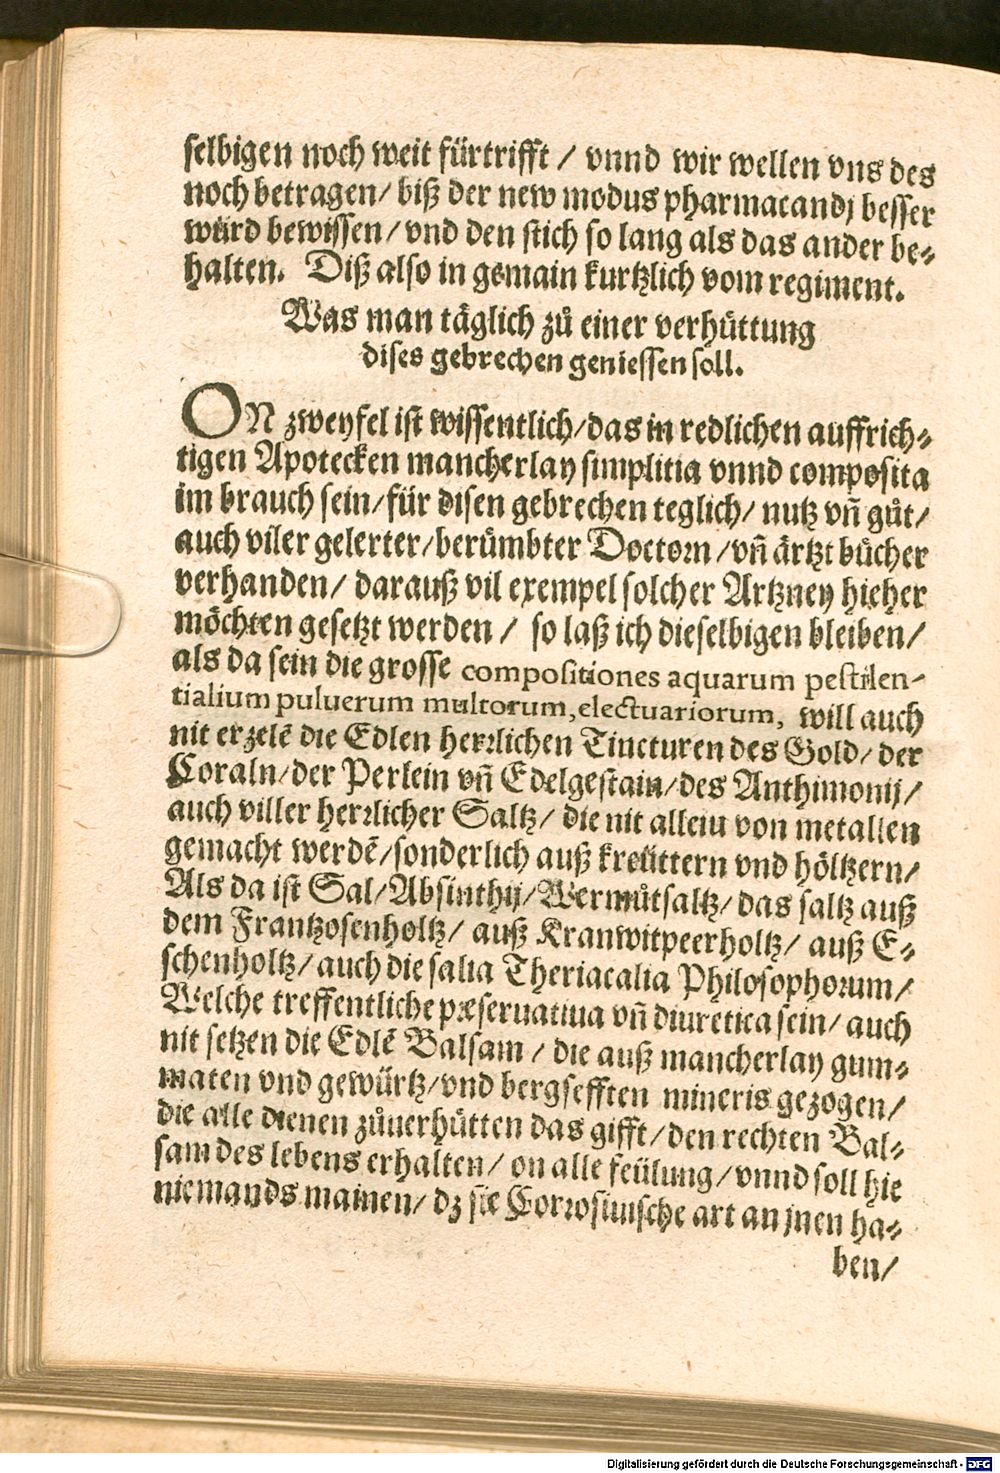 selbigen noch weit fürtrifft / vnnd wir wellen vns des
noch betragen / biß der new modus pharmacandj besser
würd bewissen / vnd den stich so lang als das ander be-
halten. Diß also in gemain kurtzlich vom regiment.
Was man täglich zů einer verhüttung
dises gebrechen geniessen soll.
ON zweyfel ist wissentlich / das in redlichen auffrich-
tigen Apotecken mancherlay simplitia vnnd composita
im brauch sein / für disen gebrechen teglich / nutz vn̄ gůt /
auch viler gelerter / berümbter Doctorn / vn̄ ärtzt bücher
verhanden / darauß vil exempel solcher Artzney hieher
möchten gesetzt werden / so laß ich dieselbigen bleiben /
als da sein die grosse compositiones aquarum pestilen-
tialium puluerum multorum, electuariorum, will auch
nit erzelē die Edlen herrlichen Tincturen des Gold / der
Coraln / der Perlein vn̄ Edelgestain / des Anthimonij /
auch viller herrlicher Saltz / die nit allein von metallen
gemacht werdē / sonderlich auß kreüttern vnd höltzern /
Als da ist Sal / Absinthij / Wermůtsaltz / das saltz auß
dem Frantzosenholtz / auß Kranwitpeerholtz / auß E-
schenholtz / auch die salia Theriacalia Philosophorum /
Welche treffentliche præseruatiua vn̄ diuretica sein / auch
nit setzen die Edlē Balsam / die auß mancherlay gum-
maten vnd gewürtz / vnd bergsefften mineris gezogen /
die alle dienen zůuerhütten das gifft / den rechten Bal-
sam des lebens erhalten / on alle feülung / vnnd soll hie
niemands mainen / dz sie Corrosiuische art an jnen ha-
ben /
Digitalisierung gefördert durch die Deutsche Forschungsgemeinschaft - DFG